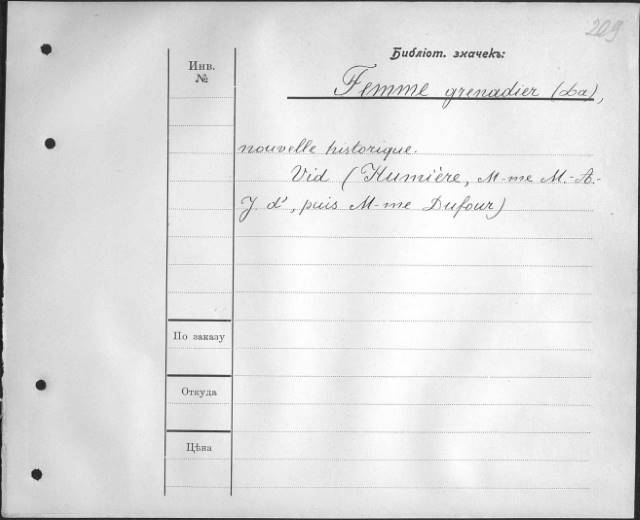 209
Библіот. значекъ:
Инв.
№
Femme grenadier (La),
nouvelle historique.
Vid (Humière, M-me M.-A.-
J. d', puis M-me Dufour)
По заказу
Откуда
Цѣна